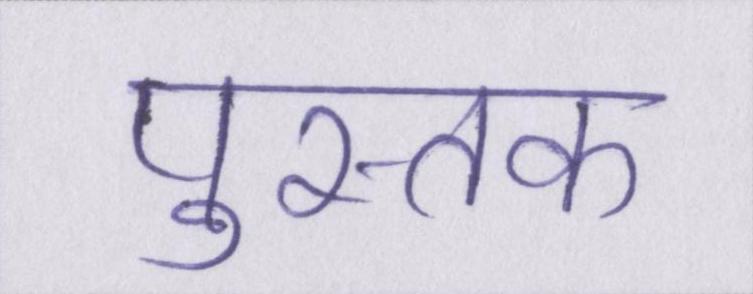 पुस्तक